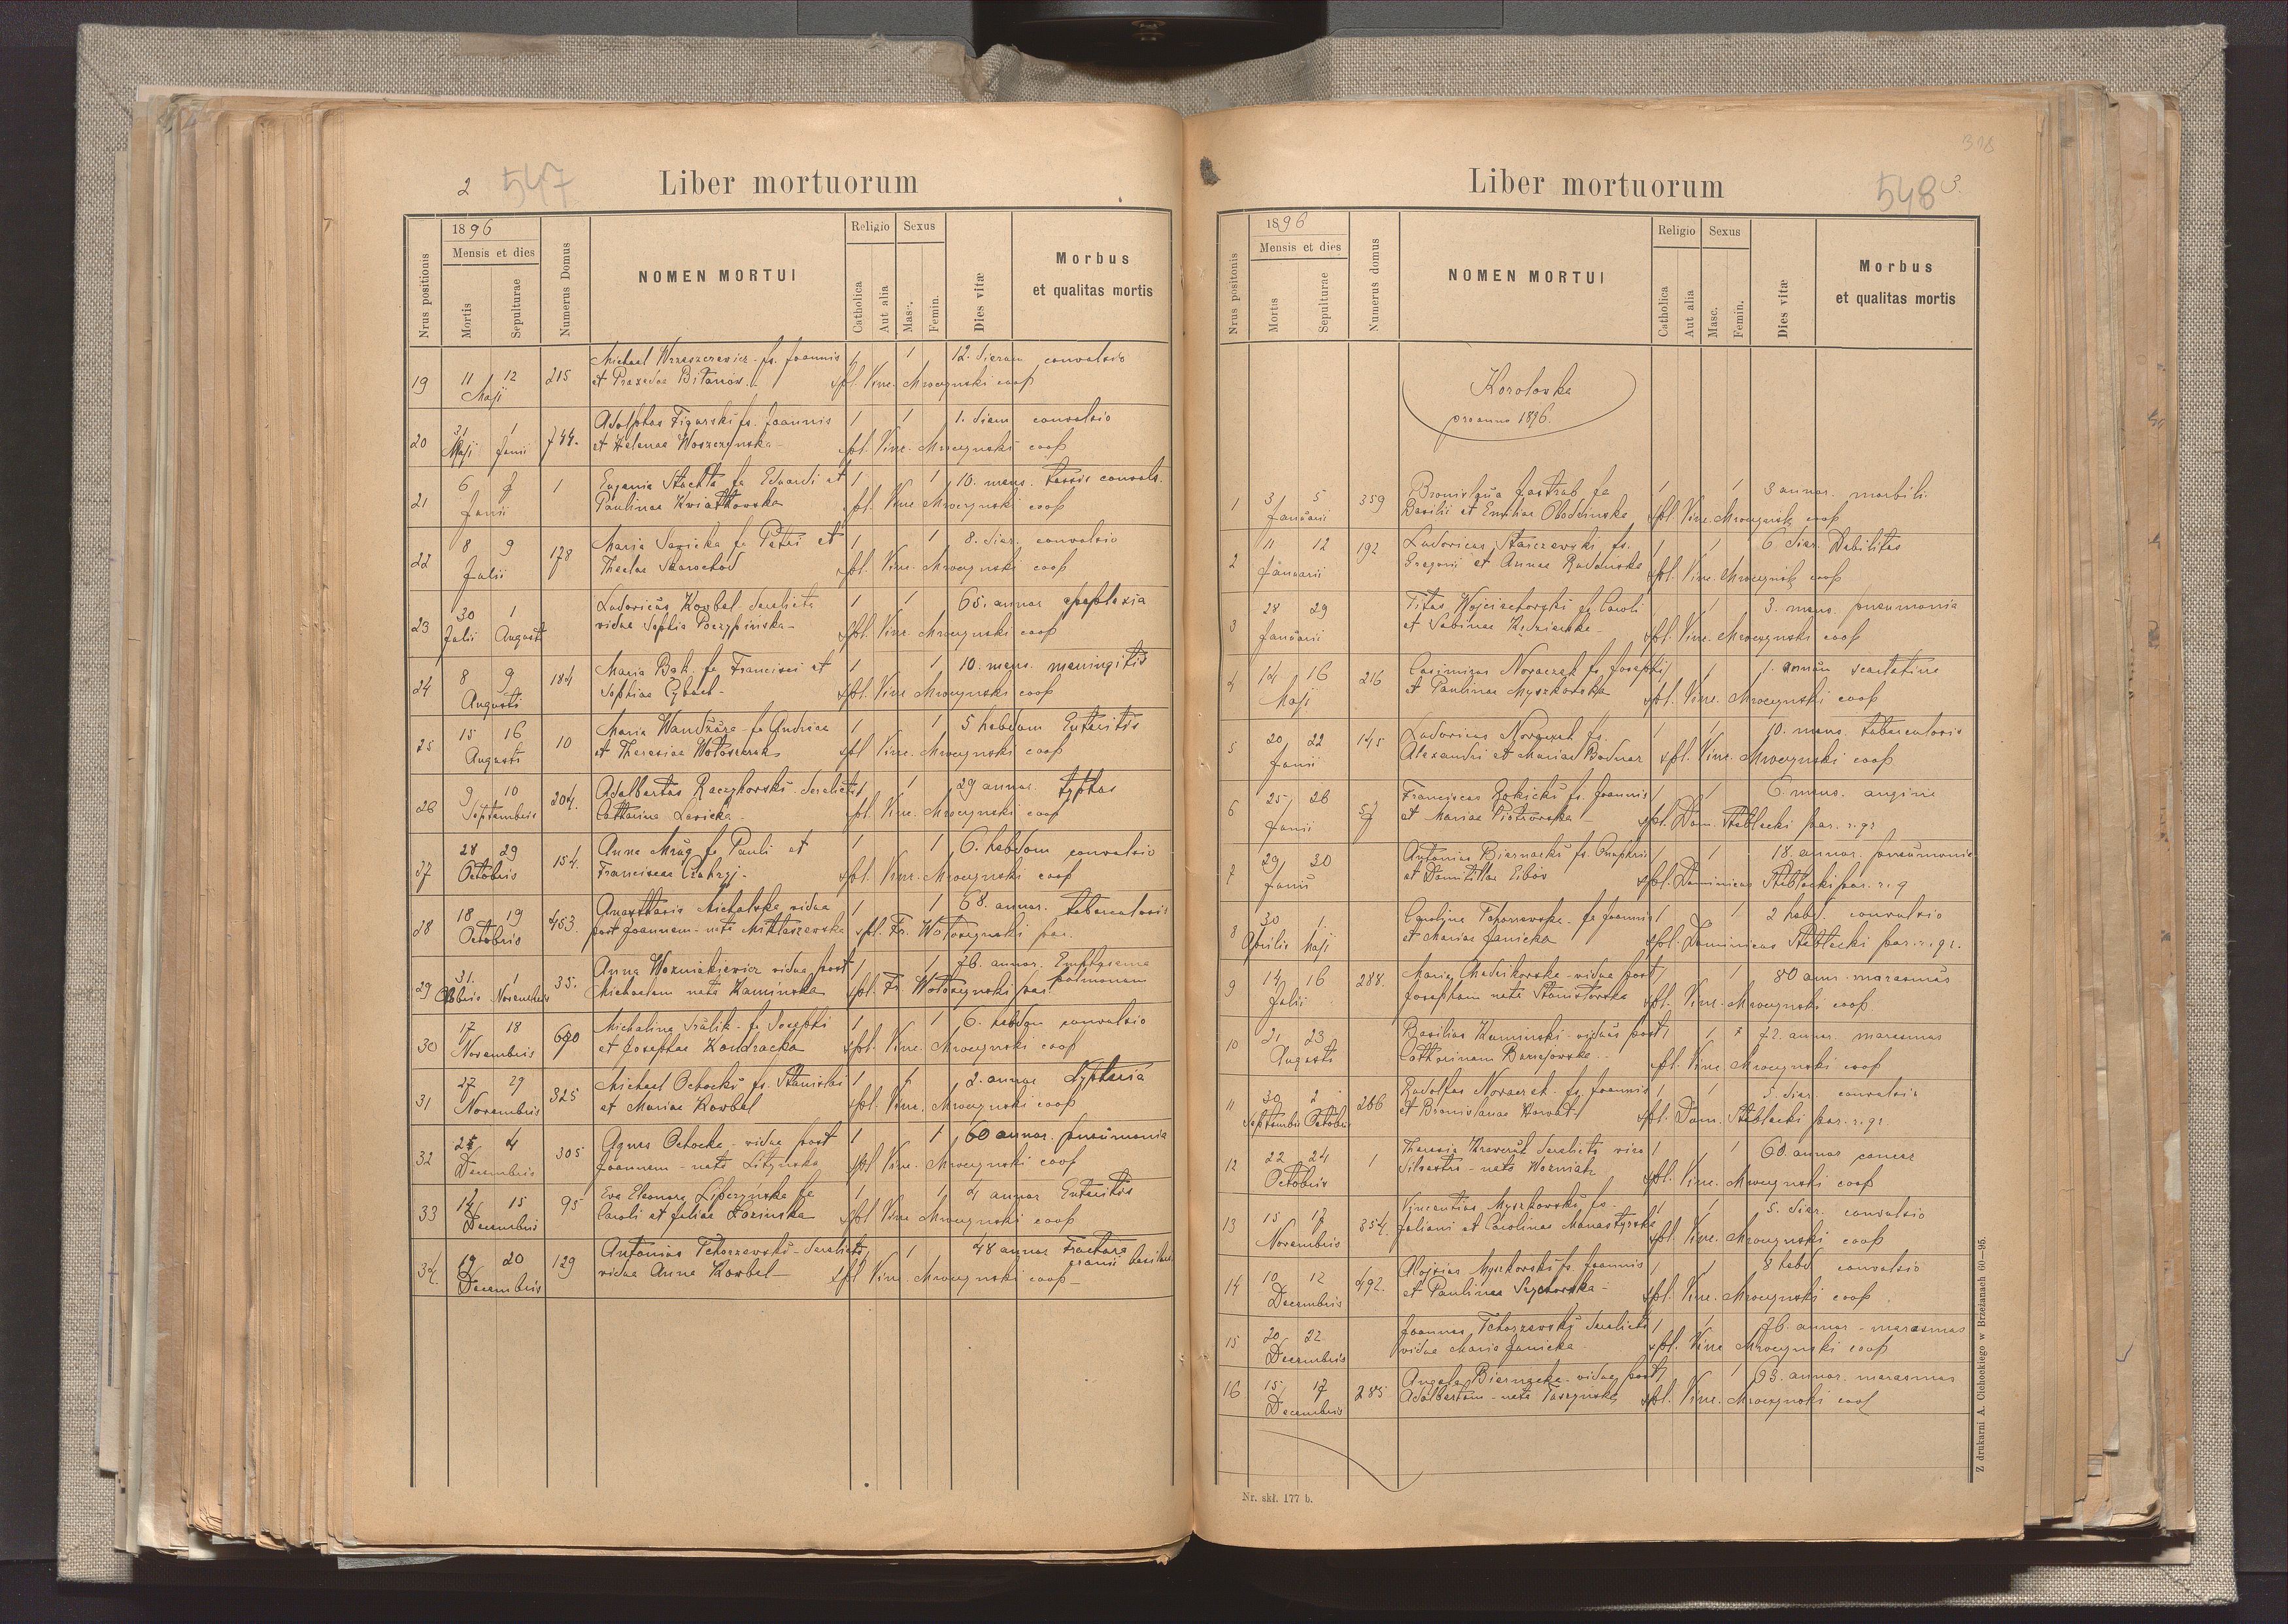 2 547 Liber mortuorum
1896
Mensis et dies
Nrus positionis
Mortis
Sepulturae
Numerus Domus
NOMEN MORTUI
Religio
Catholica
Aut alia
Sexus
Masc.
Femin.
Dies vitæ
Morbus
et qualitas mortis
19 11 12 Maji 215 Michael fs. Joannis 1 1 12. dierum convulsio
et Praxedae spl. Vinc. Mroczynski coop
20 31 Maji 1 Junii 744. Adolphus Figurski fs. Joannis 1 1 1. diem convulsio
et Helenae Woszczynska spl. Vinc. Mroczynski coop
21 6 7 Junii 1 Eugenia fa Eduardi et 1 1 10. mens. tussis convuls.
Paulinae Kwiatkowska spl. Vinc. Mroczynski coop
22 8 9 Julii 178 Maria Sawicka fa Petri et 1 1 8. dier. convulsio
Theclae spl. Vinc. Mroczynski coop
23 30 Julii 1 Augusti Ludovicus Korbel derelicta 1 1 65. annor apoplexia
vidua Sophia spl. Vinc. Mroczynski coop
24 8 9 Augusti 184 Maria Bak fa Francisci et 1 1 10. mens. meningitis
Sophiae spl. Vinc. Mroczynski coop
25 15 16 Augusti 10 Maria fa Andreae 1 1 5 hebdom Enteritis
et Theresiae spl Vinc. Mroczynski coop
26 9 10 Septembris 204. Adalbertus Raczykowski derelicta 1 1 29 annor. typhus
Catharina Lesicka spl. Vinc. Mroczynski coop
27 28 29 Octobris 154. Anna Mróz fa Pauli et 1 1 6. hebdom convulsio
Franciscae spl. Vinc. Mroczynski coop
28 18 19 Octobris 453. Anastasia Michalska vidua 1 1 68. annor. tuberculosis
post Joannem - nata Miklaszewska spl. Fr. Wołoszynski par.
29 31. 1 Novembris 35. Anna Wozniakiewicz vidua post 1 1 76. annor. Emphysema
Michaelem nata Kaminska spl. Fr. Wołoszynski par. pulmonum
30 17 18 Novembris 690 Michalina fa Josephi 1 1 6. hebdom convulsio
et Josephae Kondracka spl. Vinc. Mroczynski coop
31 27 29 Novembris 325 Michael Ochocki fs. Stanislai 1 1 2. annor dyphteria
et Mariae Korbel spl. Vinc. Mroczynski coop
32 4 Decembris 305 Agnes Ochocka - vidua post 1 1 60 annor. pneumonia
Joannem - nata Litynska spl Vinc. Mroczynski coop
33 15 Decembris 95 Eva Eleonora fa 1 1 4 annor Enteritis
Caroli et Juliae Łozinska spl. Vinc. Mroczynski coop
34. 19 20 Decembris 129 Antonius Tchorzewski - derelicta 1 48 annor Fractura
vidua Anna Korbel spl Vinc. Mroczynski coop cranii
318
Liber mortuorum 548 3.
1896
Mensis et dies
Nrus positionis
Mortis
Sepulturae
Numerus domus
NOMEN MORTUI
Religio
Catholica
Aut alia
Sexus
Masc.
Femin.
Dies vitæ
Morbus
et qualitas mortis
Korolovka
pro anno 1896.
1 3 5 Januarii 359 Bronislava Jastrab fa 1 1 3 annor. morbili
Basilii et Emiliae spl. Vinc. Mroczynski coop
2 11 12 Januarii 192 Ludovicus Starczewski fs. 1 1 6 dier. Debilitas
Gregorii et Annae Rudnicka spl. Vinc. Mroczynski coop
3 28 29 Januarii Titus Wojciechowski fs Caroli 1 3. mens. pneumonia
et Sabinae spl. Vinc. Mroczynski coop
4 14 16 Maji 216 Casimirus Novaczek fs Josephi 1 1 1. annum scarlatine
et Paulinae Myszkowska spl. Vinc. Mroczynski coop
5 20 22 Junii 145 Ludovicus Novaczek fs. 1 1 10. mens. tuberculosis
Alexandri et Mariae Bodnar spl. Vinc. Mroczynski coop
6 25 26 Junii 57 Franciscus Rokicki fs. Joannis 1 1 6. mens. angine
et Mariae Piotrowska spl. Dom. Steblecki par. r. gr
7 29 30 Junii Antonius Biernacki fs. Onuphrii 1 1 18. annor. pneumonia
et Domitillae spl. Dominicus Steblecki par. r. g
8 30 Aprilis 1 Maji Carolina Tchorzewska fa Joannis 1 1 2 hebd. convulsio
et Mariae Janicka spl. Dominicus Steblecki par. r. gr.
9 14 16 Julii 288. Maria vidua post 1 1 80 ann. marasmus
Josephum nata Stanisłavska spl. Vinc. Mroczynski coop.
10 21 23 Augusti Basilius Kaminski - viduus post 1 1 72. annor. marasmus
Catharinam spl. Vinc. Mroczynski coop
11 30 Septembris 2 Octobris 266 Rudolfus Novaczek fs. Joannis 1 1 5. dier. convulsio
et Bronislavae Horvat spl. Dom. Steblecki par. r. gr
12 22 24 Octobris 1 Theresia derelicta viro 1 1 60. annor cancer
Silvestro - nata Wozniak spl. Vinc. Mroczynski coop
13 15 17 Novembris 354. Vincentius Myszkowski fs. 1 1 5. dier. convulsio
Juliani et Carolinae Monastyrska spl. Vinc. Mroczynski coop
14 10 12 Decembris 492. Aloisius Myszkowski fs. Joannis 1 1 8 hebd convulsio
et Paulinae spl. Vinc. Mroczynski coop.
15 20 22. Decembris Joannes Tchorzewski derelicta 1 1 76. annor - marasmus
vidua Maria Janicka spl. Vinc Mroczynski coop
16 15 17 Decembris 285 Angela Biernacka - vidua post 1 1 63. annor. marasmus
Adalbertum - nata spl. Vinc. Mroczynski coop
Nr. skł. 177 b.
Z drukarni A. Cichockiego w Brzeżanach 60—95.